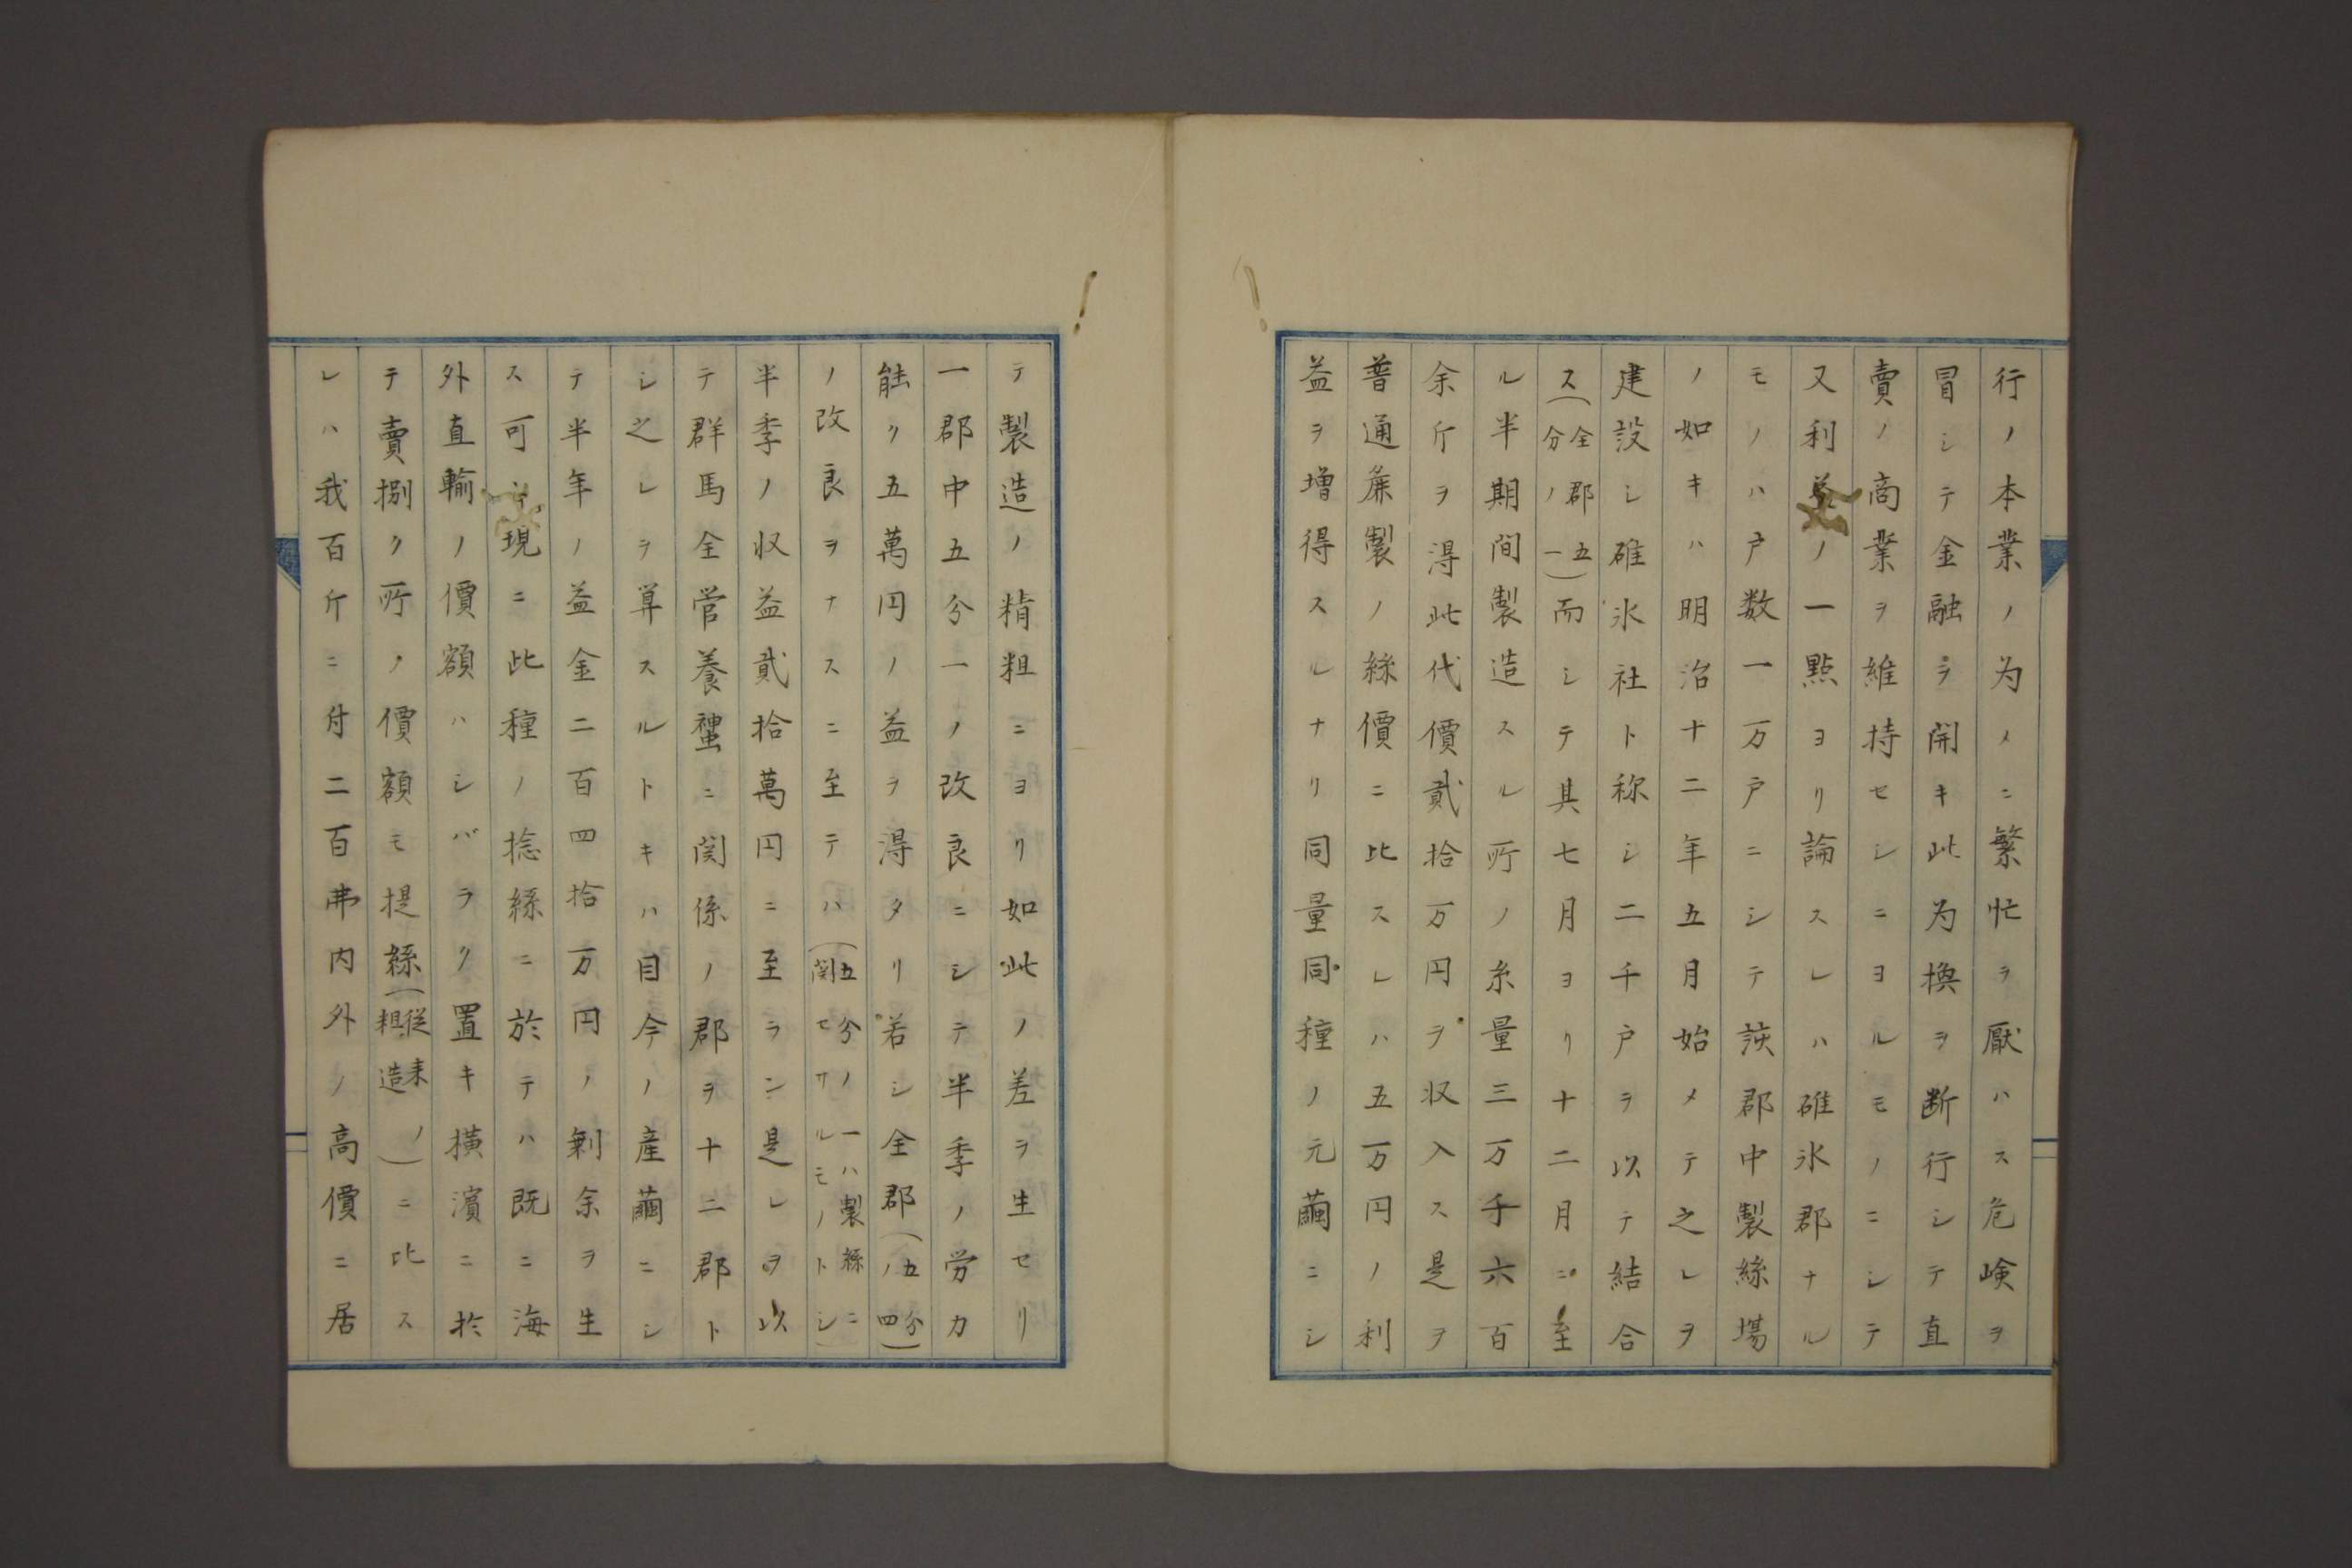 行ノ本業ノ为メニ繁忙ヲ厭ハス危険ヲ
冒シテ金融ヲ開キ此为換ヲ断行シテ直
賣ノ商業ヲ維持セシニヨルモノニシテ
又利益ノ一點ヨリ論スレハ碓氷郡ナル
モノハ戸数一万戸ニシテ該郡中製絲場
ノ如キハ明治十二年五月始メテ之レヲ
建設シ碓氷社ト称シ二千戸ヲ以テ結合
ス(全郡五分ノ一)而シテ其七月ヨリ十二月ニ至
ル半期間製造スル所ノ糸量三万千六百
余斤ヲ得此代價貳拾万円ヲ収入ス是ヲ
普通麁製ノ絲價ニ比スレハ五万円ノ利
益ヲ増得スルナリ同量同種ノ元繭ニシ
テ製造ノ精粗ニヨリ如此ノ差ヲ生セリ
一郡中五分一ノ改良ニシテ半季ノ労力
能ク五萬円ノ益ヲ得タリ若シ全郡(五分ノ四)
ノ改良ヲナスニ至テハ(五分ノ一ハ製絲ニ関セサルモノトシ)
半季ノ収益貳拾萬円ニ至ラン是レヲ以
テ群馬全管養蚕ニ関係ノ郡ヲ十二郡ト
シ之レヲ算スルトキハ目今ノ産繭ニシ
テ半年ノ益金二百四拾万円ノ剰余ヲ生
ス可シ現ニ此種ノ捻絲ニ於テハ既ニ海
外直輸ノ價額ハシバラク置キ横濱ニ於
テ賣捌ク所ノ價額モ提絲(従来ノ粗造)ニ比ス
レハ我百斤ニ付二百弗内外ノ高價ニ居